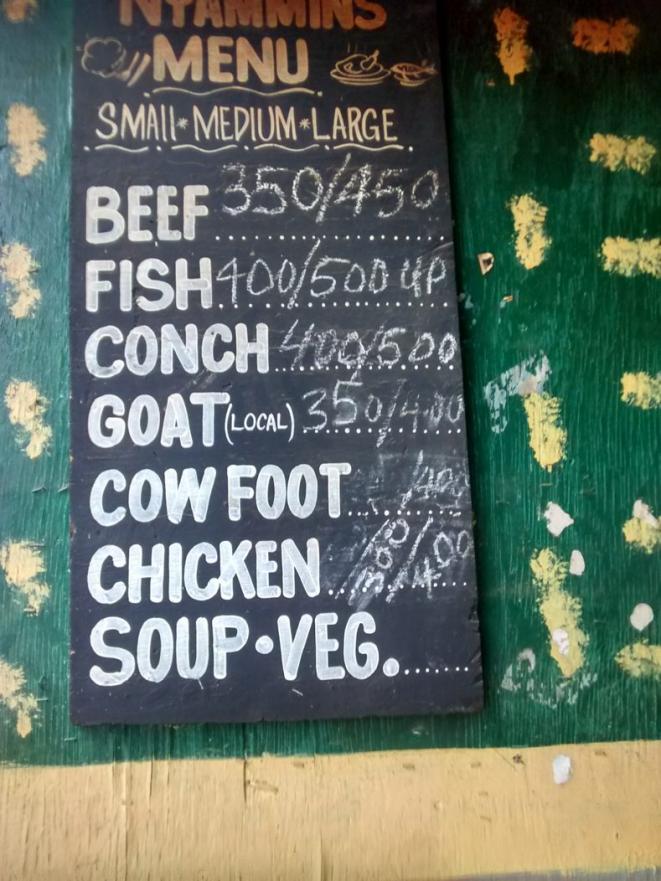 NYAMMINS
MENU
SMALL*MEDIUM*LARGE
BEEF 350/450
FISH 400/500 UP
CONCH 400/500
GOAT (LOCAL) 350/400
COW FOOT /400
CHICKEN 300/400
SOUP•VEG.